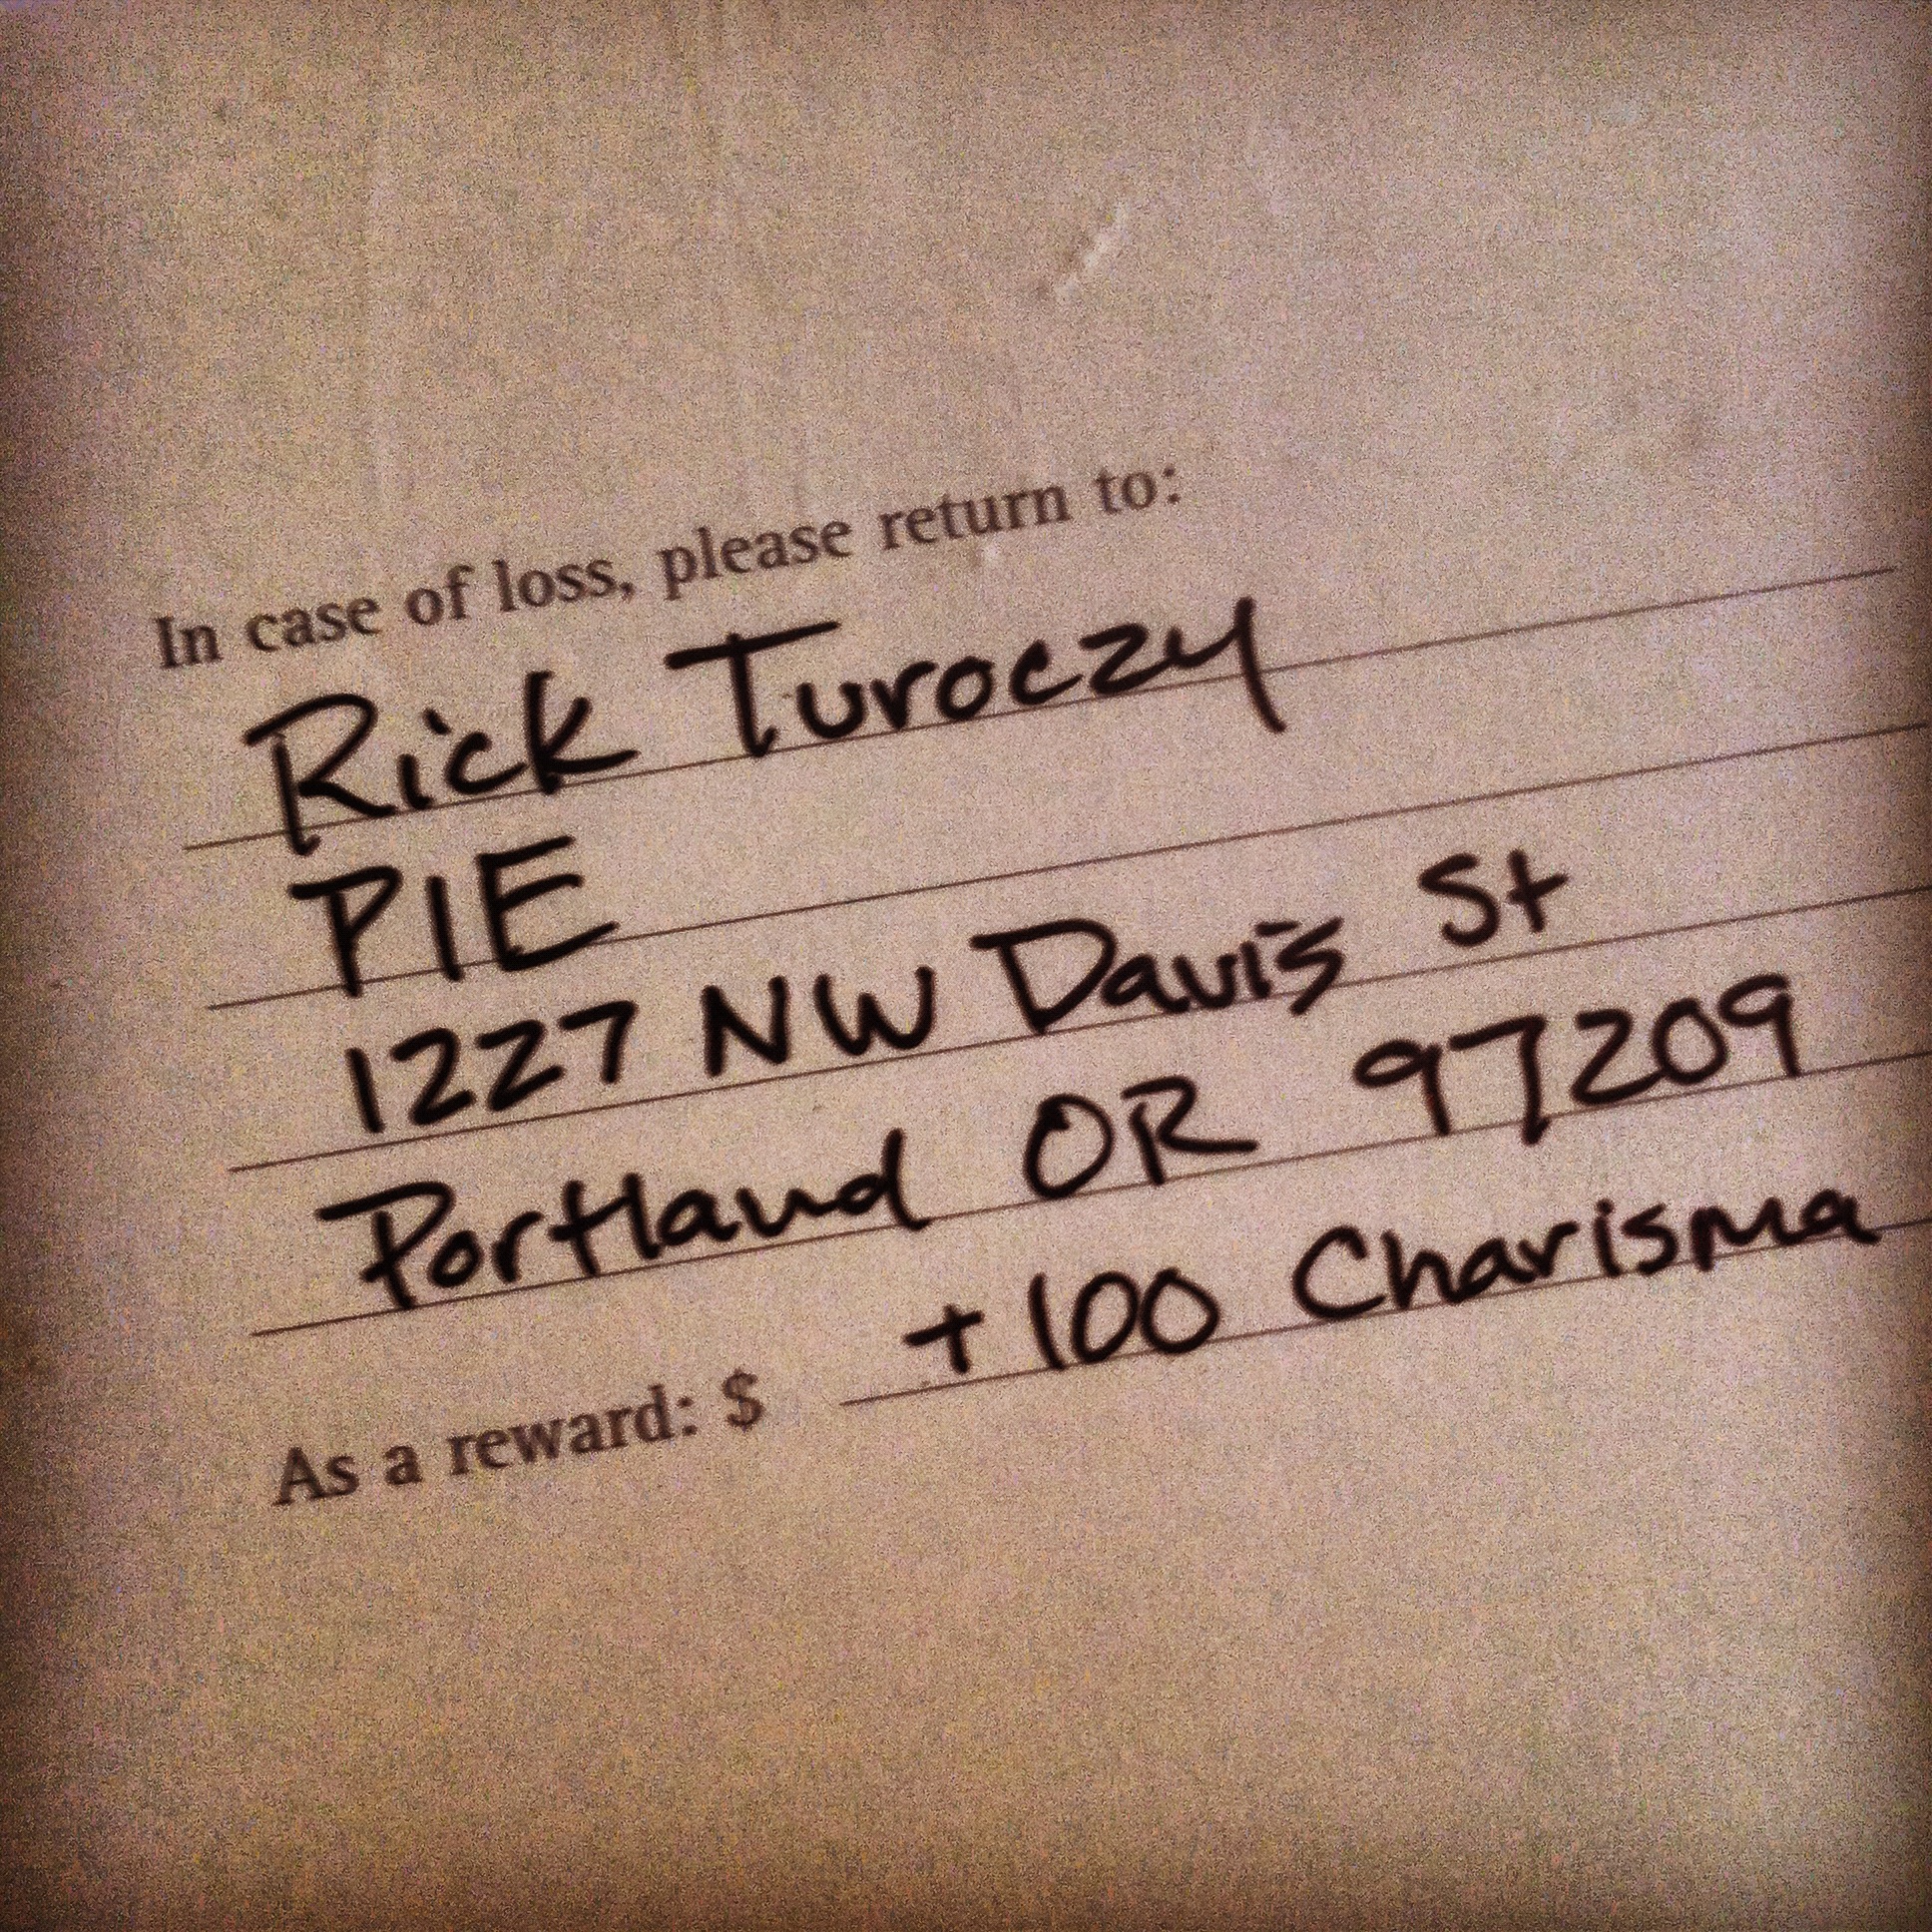 In case of loss, please return to:
Rick Turoczy
PIE
1227 NW Davis St
Portland OR 97209
As a reward: $ +100 Charisma